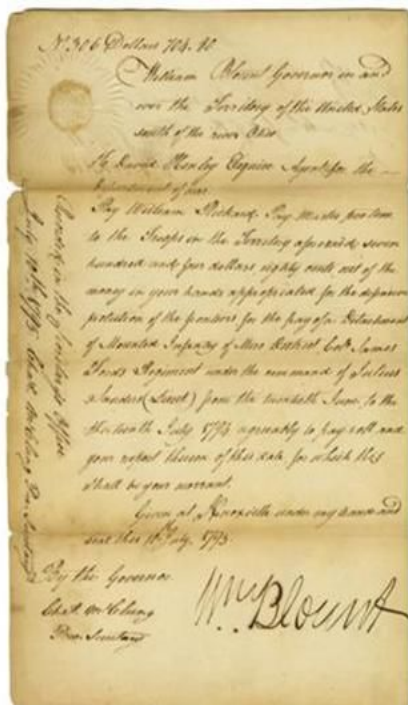 No 306 Dollars 704.80
William Blount Governor in and
over the Territory of the United States
south of the river Ohio
To David Henley Esquire Agent for the
Department of War
Pay William Rickard Pay Master pro tem
to the Troops in the Territory aforesaid seven
hundred and four dollars eighty cents out of the
money in your hands appropriated for the defensive
protection of the frontiers for the pay of a Detachment
of Mounted Infantry of Mero District Colo James
Fords Regiment under the command of Julius
Sanders (Lieut) from the twentieth June to the
thirteenth July 1794 agreeably to pay roll and
your report thereon of this date for which this
shall be your warrant.
Given at Knoxville under my hand and
seal this 10th July 1795
By the Governor
Chas McClung
Pro. Secretary
Wm Blount
Recorded in the Secretary's Office
July 10th 1795 Chas McClung Pro. Secretary